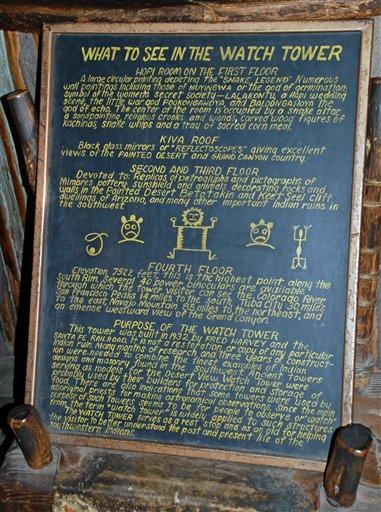 WHAT TO SEE IN THE WATCH TOWER
HOPI ROOM ON THE FIRST FLOOR
A large circular painting depicting the "SNAKE LEGEND" Numerous
wall paintings including those of MUYINGWA or the god of germination,
symbol of the women's secret society - LALAKONTU, a Hopi wedding
scene, the little war god POOKONGAHOYA, and BALDONGAHOYA the
god of echo. The center of the room is occupied by a snake altar,
a sandpainting, religious crooks and wands, carved wood figures of
kachinas, snake whips and a tray of sacred corn meal.
KIVA ROOF
Black glass mirrors or "REFLECTOSCOPES" giving excellent
views of the PAINTED DESERT and GRAND CANYON country.
SECOND AND THIRD FLOOR
Devoted to: Replicas of petroglyphs and pictographs of
Mimbres pottery, sunshield, and animals decorating rocks and
walls in the Painted Desert Betatakin and Keet Seel cliff
dwellings of Arizona, and many other important Indian ruins in
the southwest.
FOURTH FLOOR
Elevation 7522 feet this is the highest point along the
South Rim. Several 40 power binoculars are available
through which the tower visitor can see the Colorado River
San Francisco Peaks 14 miles to the south, Tuba City 30 miles
to the east, Navajo Mountain 88 miles to the northeast, and
an emense westward view of the Grand Canyon.
PURPOSE OF THE WATCH TOWER
This tower was built in 1932 by FRED HARVEY and the
SANTA FE RAILROAD. It is not a restoration or copy of any particular
Indian ruin. Many months of research, and three years of construct-
ion were needed to combine the finest examples of Indian
designs and masonry found in the southwest. Ancient towers
serving as models for the Desert View Watch Tower were
probably used by their builders for protection and storage of
food. There are also indications that some towers were used by
aboriginal priests for making astronomical observations. Since the main
purpose of such towers seems to be for people to observe or watch
from, the term "watch tower" is usually applied to such structures.
The WATCH TOWER serves as a rest stop and as an aid for helping
the visitor to better understand the past and present life of the
Southwestern Indians.